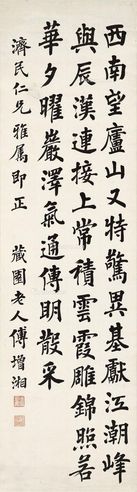 西南望廬山又特驚異基厭江潮峰
與辰漢連接上常積雲霞雕錦縟若
華夕曜巖澤氣通傳明散采
濟民仁兄雅屬即正
藏園老人傅增湘